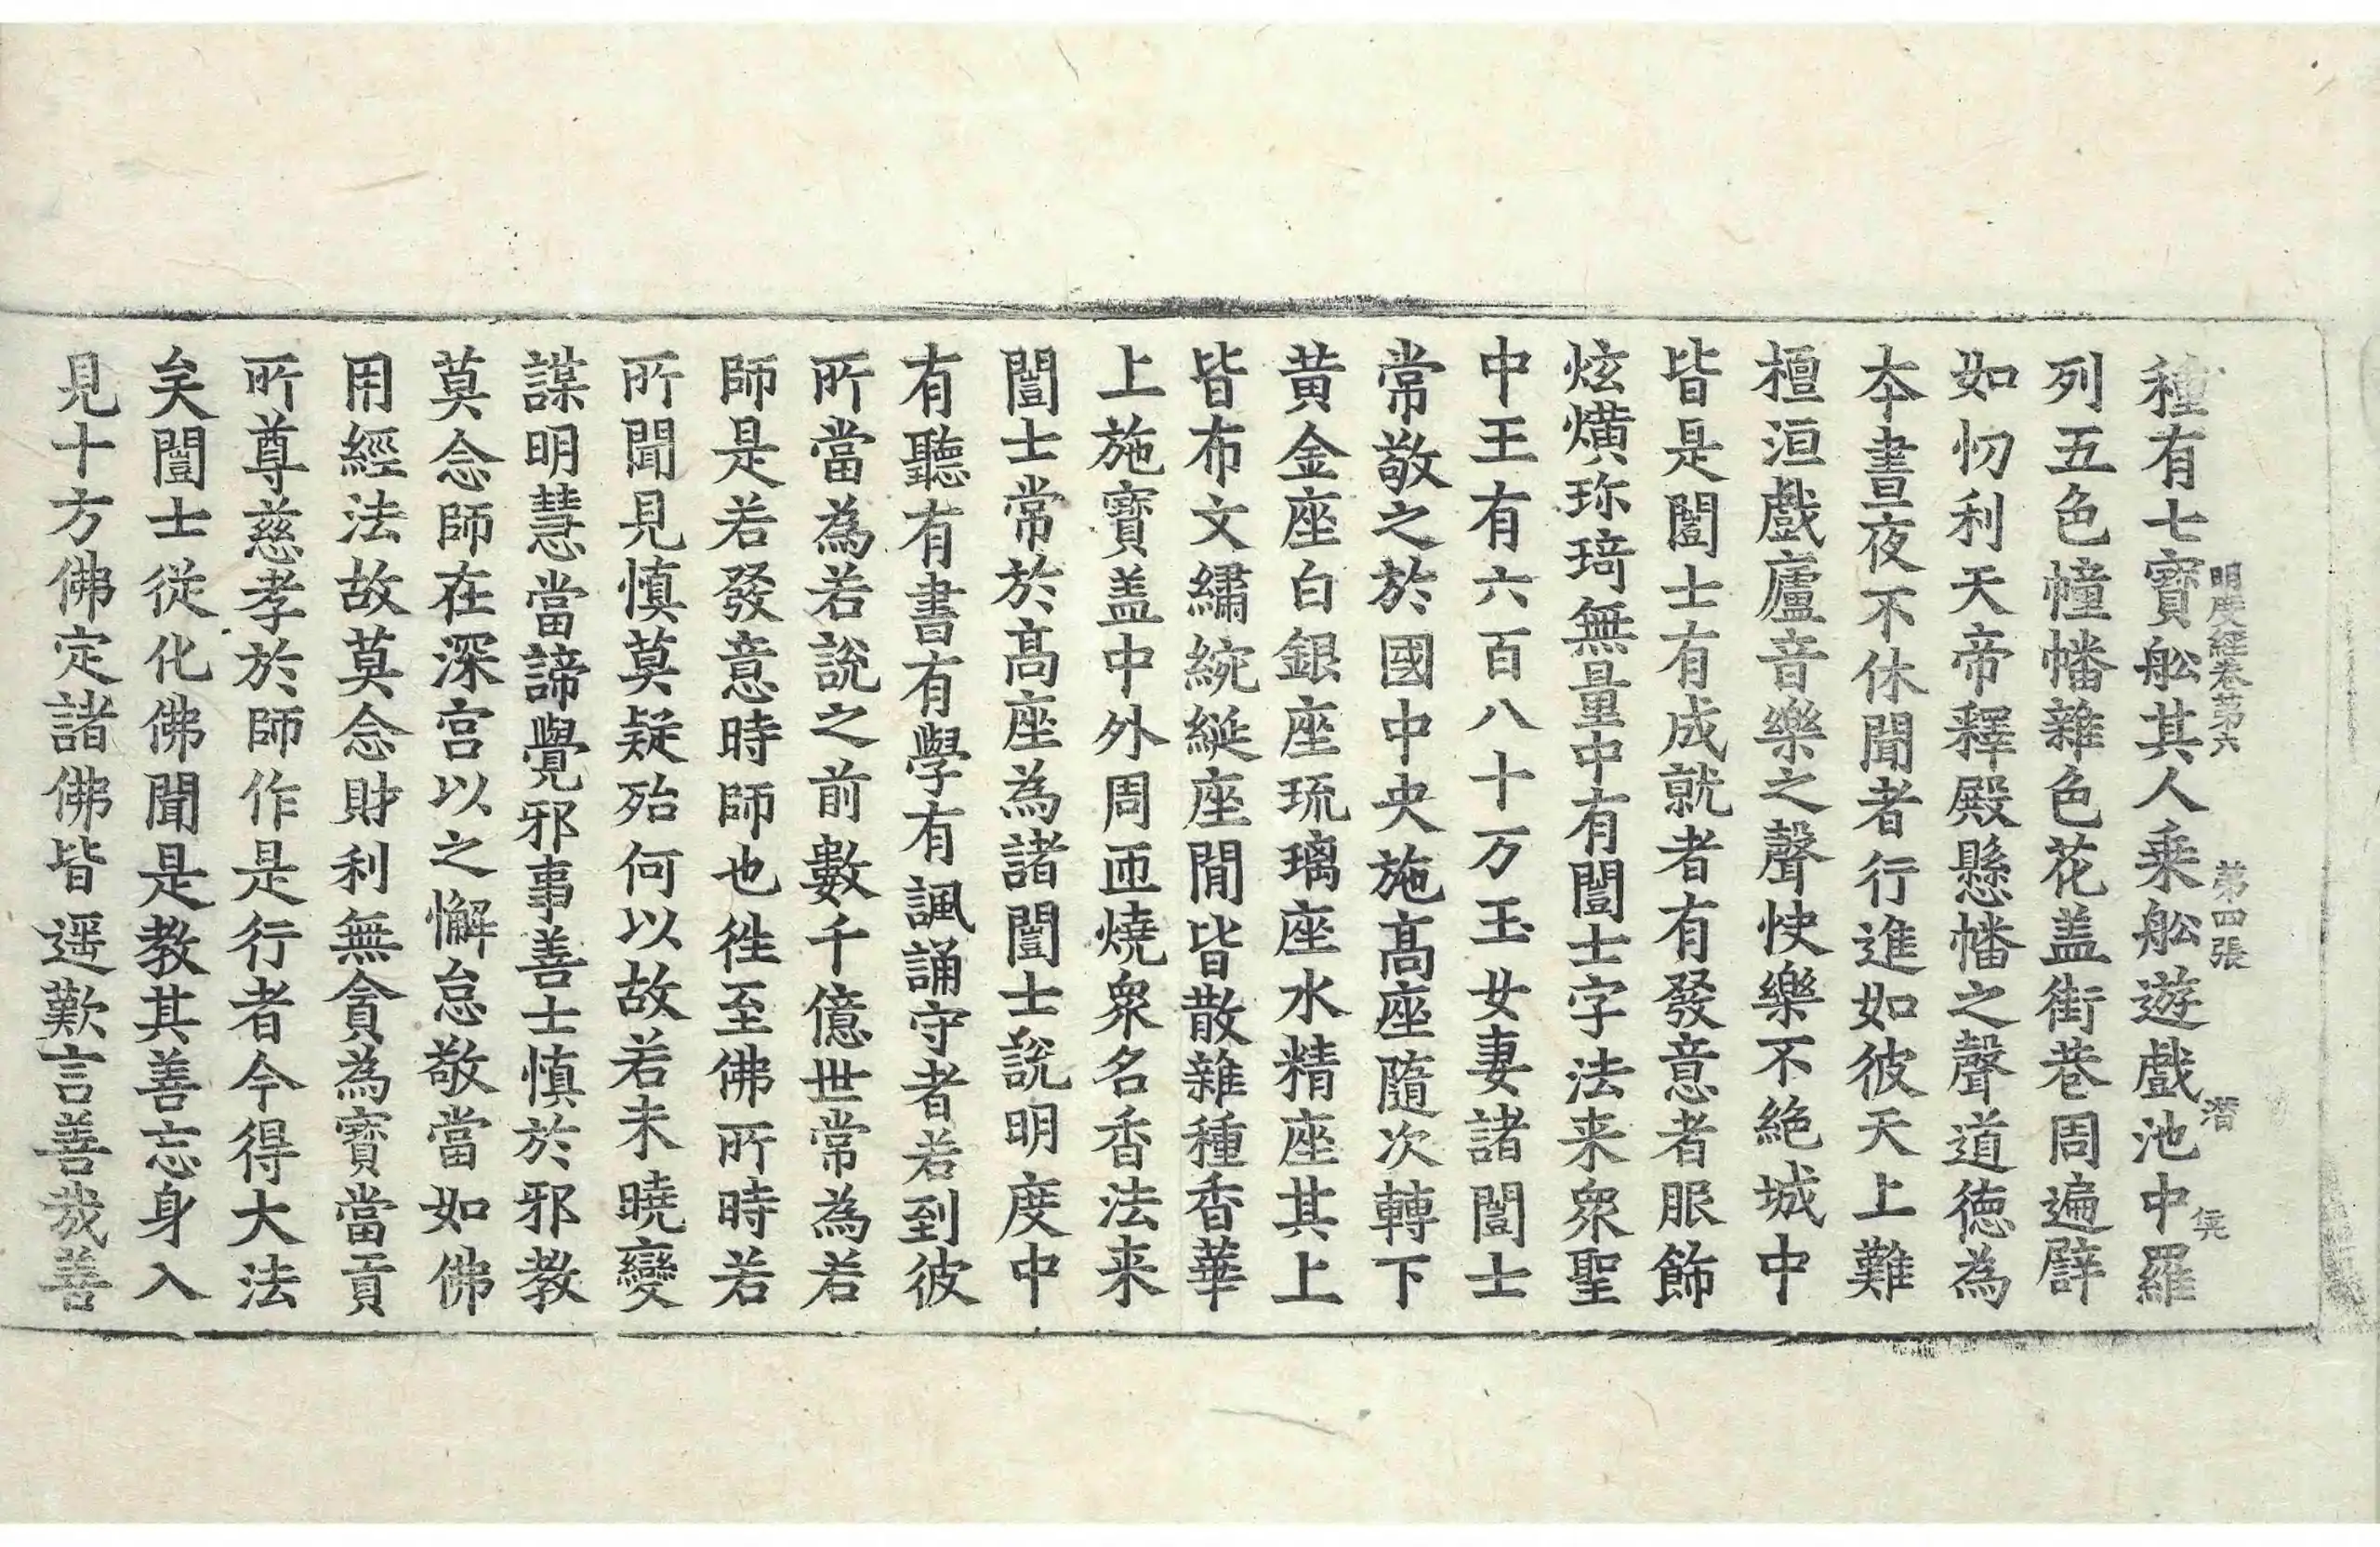 明度經卷第六 第四張 潛
種有七寶舩其人乗舩遊戲池中羅
列五色幢幡雜色花盖街巷周遍譬
如忉利天帝釋殿懸幡之聲道徳為
本晝夜不休聞者行進如彼天上難
檀洹戲廬音樂之聲快樂不絶城中
皆是闓士有成就者有發意者服飾
炫熿珎琦無量中有闓士字法来衆聖
中王有六百八十万玉女妻諸闓士
常敬之於國中央施髙座隨次轉下
黄金座白銀座琉璃座水精座其上
皆布文繡綩綖座間皆散雜種香華
上施寶盖中外周匝燒衆名香法来
闓士常於髙座為諸闓士說明度中
有聽有書有學有諷誦守者若到彼
所當為若說之前數千億世常為若
師是若發意時師也徃至佛所時若
所聞見慎莫疑殆何以故若未曉變
謀明慧當諦覺邪事善士慎於邪教
莫念師在深宫以之懈怠敬當如佛
用經法故莫念財利無貪為寶當貢
所尊慈孝於師作是行者今得大法
矣闓士從化佛聞是教其善忘身入
見十方佛定諸佛皆遥歎言善哉善